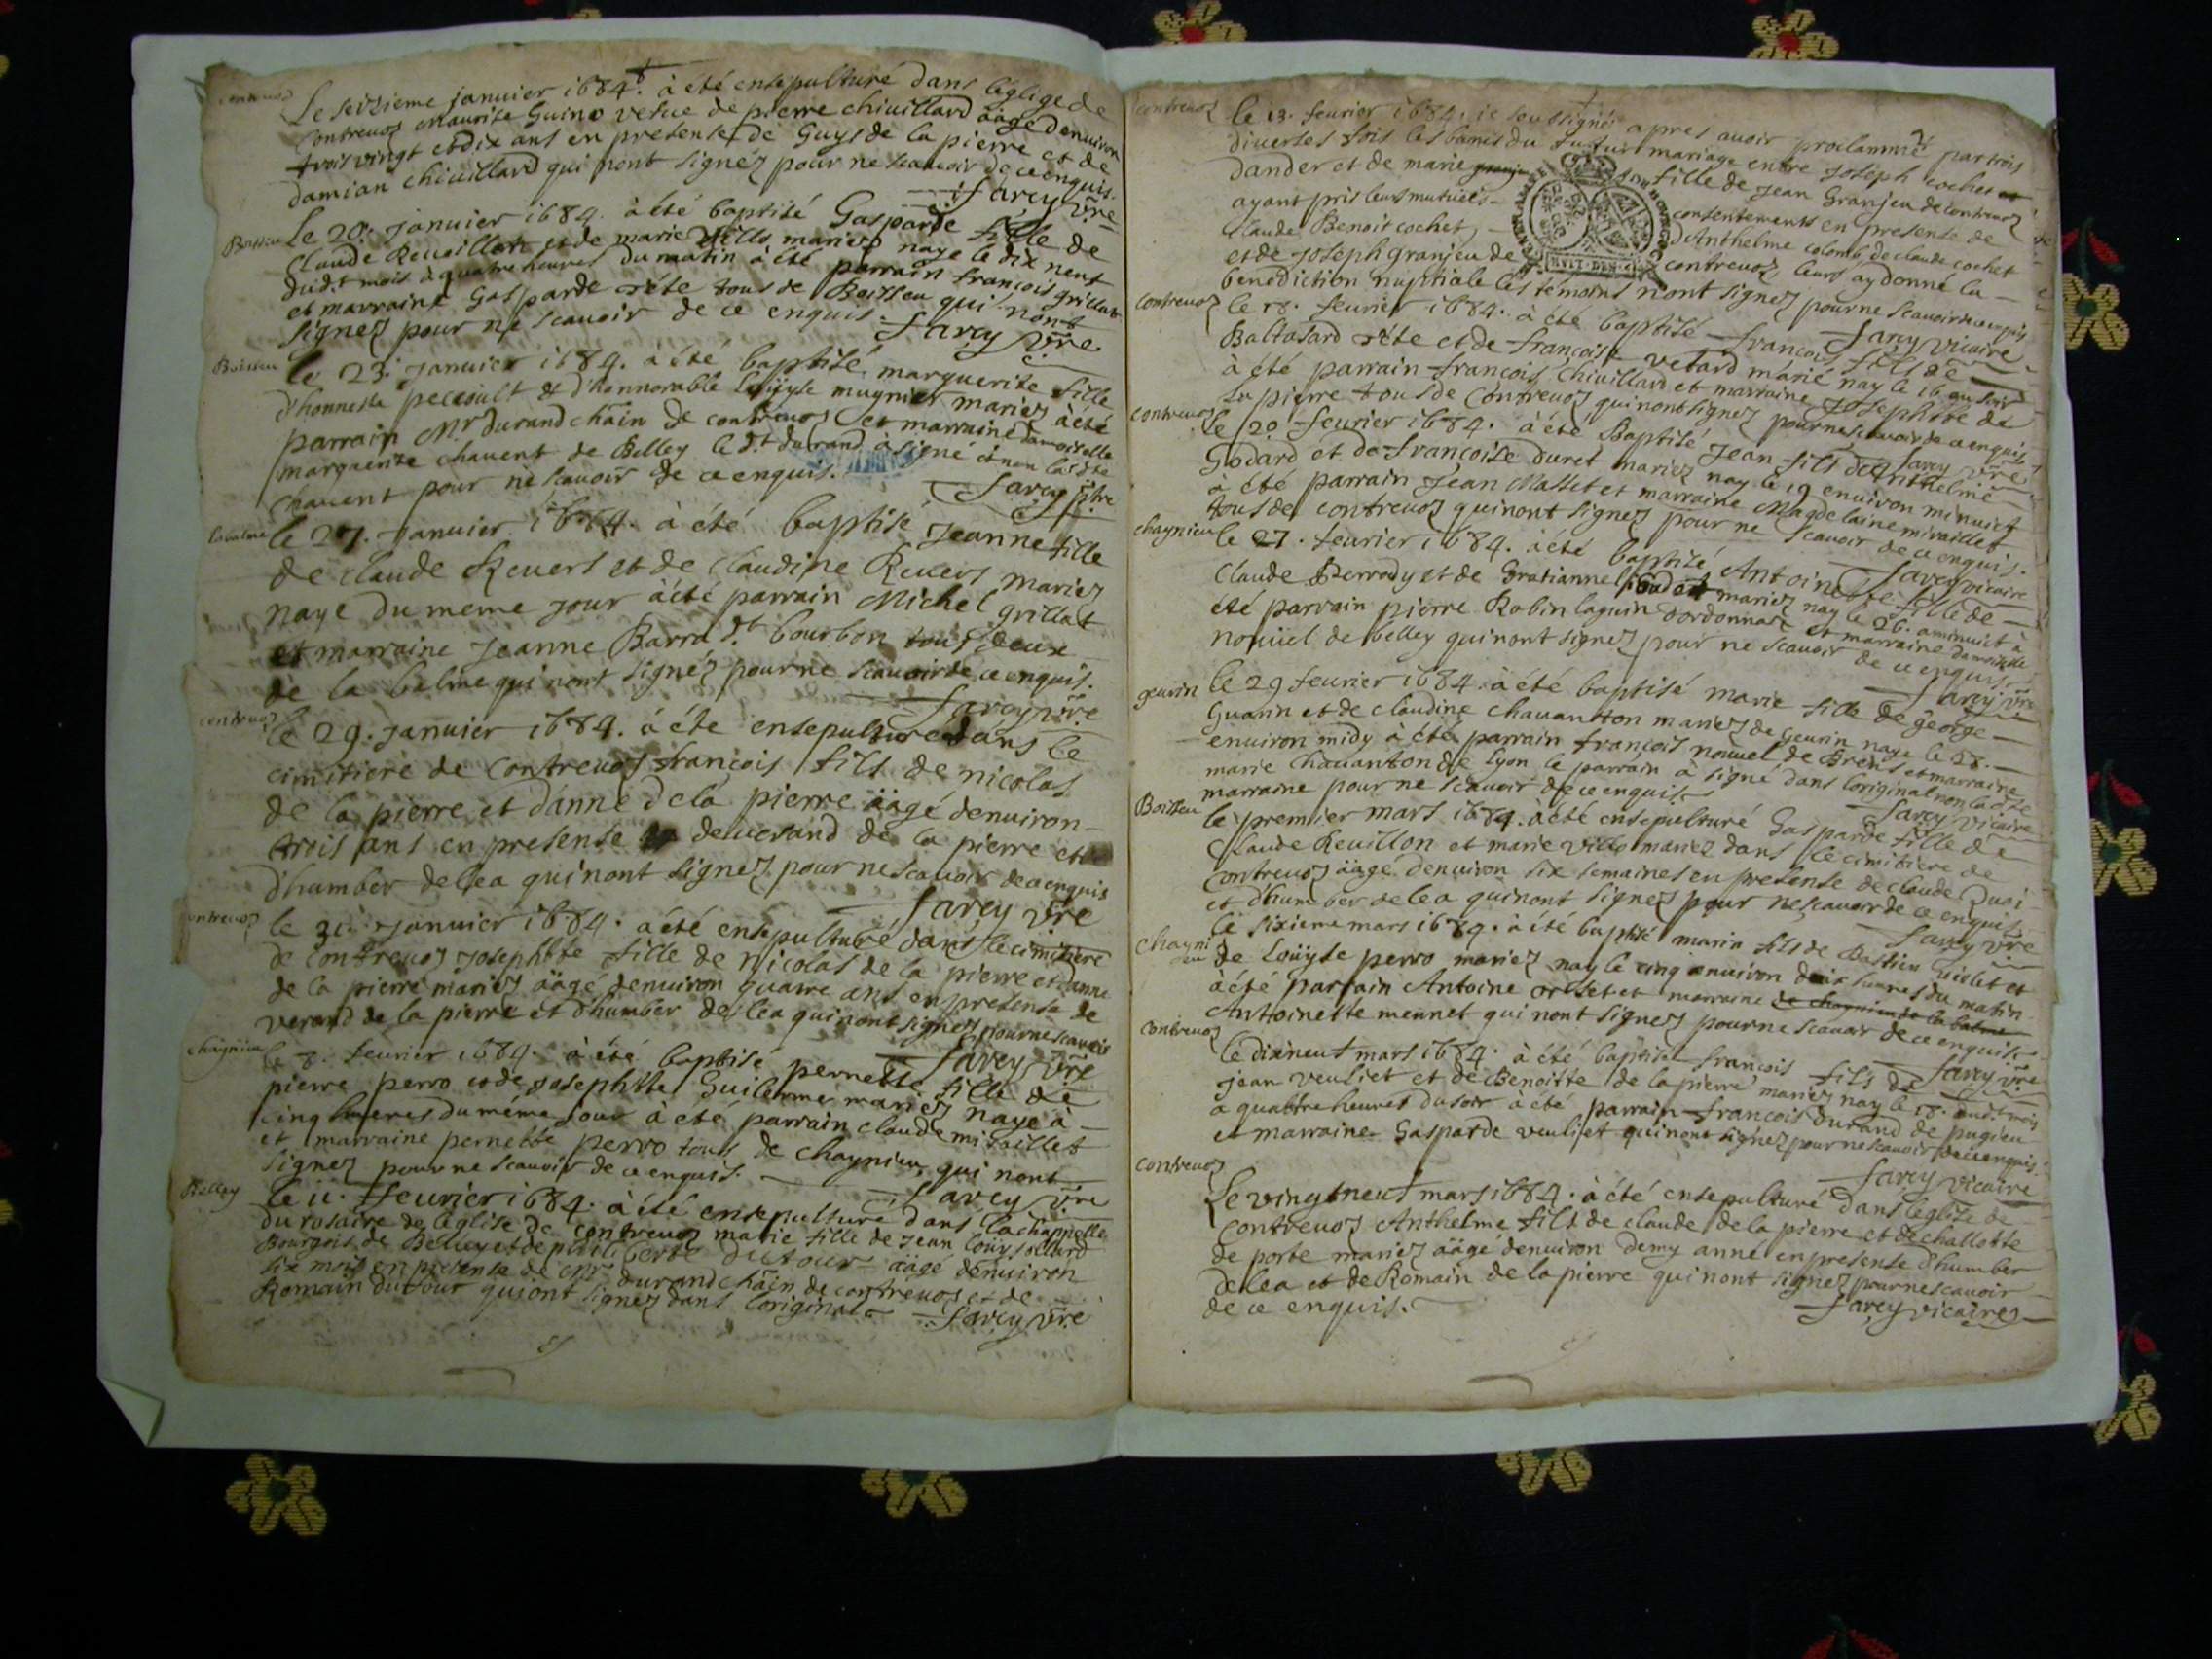 contrevoz
Le seizieme janvier 1684. à été ensepulturé dans leglige de
Contrevoz Maurise Guino vefue de pierre chivillard äagé denuiron
trois vingt et dix ans en presense de Guys de la pierre et de
damian chivillard qui nont signéz pour ne scauoir de ce enquis.
Sarcy vre
Boissieu
Le 20. Janvier 1684. à été baptisé Gasparde fille de
Claude Reuoillon et de marie Villo mariez naye le dix neuf
dud.t mois à quatre heures du matin à été parrain francois grillat
et marraine Gasparde réte tous de Boisseu qui nont
signez pour ne scauoir de ce enquis. Sarcy vre
Boisseu
le 23. Janvier 1684. à été baptisé marguerite fille
d'honneste peccoult & d'honnorable Loüyse mugnier mariez à été
parrain Mr durand chäin de contrevoz et marraine damoiselle
marguerite chavent de Belley le d.t durand à signé et non la dte
Chavent pour ne scauoir de ce enquis.
Sarcy ptre
la balme
le 27. Janvier 1684. à été baptisé Jeanne fille
de claude Reuers et de claudine Reuers mariez
naye du meme jour à été parrain Michel grillat
et marraine Jeanne Barra d.t bourbon tous deux
de la balme qui nont signéz pour ne scauoir de ce enquis.
Sarcy vre
contrevoz
le 29. Janvier 1684. à éte ensepulturé dans le
cimitiere de Contrevoz françois fils de nicolas
de la pierre et d'anne de la pierre äagé denuiron
trois ans en presense de verand de la pierre et
d'humber delea qui nont signez pour ne scauoir de ce enquis
Sarcy vre
contrevoz
le 31. Janvier 1684. à été ensepulturé dans le cimitiere
de Contrevoz Josephte fille de nicolas de la pierre et d'anne
de la pierre mariez äagé denuiron quatre ans en presense de
verand de la pierre et d'humber delea qui nont signez pour ne scauoir
Sarcy vre
chaynieu
le 8. feurier 1684. à été baptisé pernette fille de
pierre perro et de Josephte Guillerme mariez naye à
cinq heures du méme jour à été parrain claude miraillet
et marraine pernette perro touts de chaynieu qui nont
signez pour ne scauoir de ce enquis. Sarcy vre
Belley
le 11. feurier 1684. à été ensepulturé dans la chappelle
du rosaire de l'eglise de contrevoz marie fille de Jean Loüys
Bourgois de Belley et de philiberte Dutour äagé denuiron
six mois en presense de Mr durand chäin de contrevoz et de
Romain dutour qui ont signez dans l'original Sarcy vre
contrevoz
le 13. feurier 1684. je soussigné apres auoir proclammé par trois
diuerses fois les bamis du futur mariage entre Joseph cochet
dander et de marie fille de Jean Granjeu de contrevoz
ayant pris leurs mutuels consentements en presense de
Claude Benoit cochet, d'Anthelme colomb, de claude cochet
et de Joseph granjeu de contrevoz, leurs ay donné la
benediction nuptiale les témoins nont signez pour ne scauoir de ce enquis
Sarcy vicaire
contrevoz
le 18. feurier 1684. à été baptisé francois fils de
Baltasard réte et de françoise verard marié nay le 16 au soir
à été parrain francois chivillard et marraine Josephte de
la pierre tous de Contrevoz qui nont signez pour ne scauoir de ce enquis
Sarcy vre
contrevoz
le 20 feurier 1684. à été Baptisé Jean fils d'Anthelme
Godard et de françoise duret mariez nay le 19 enuiron minuict
à été parrain Jean Massit et marraine Magdelaine miraillet
tous de contrevoz qui nont signez pour ne scauoir de ce enquis.
Sarcy vicaire
chaynieu
le 27. feurier 1684. à été baptisé Antoinette fille de
Claude Perrody et de Gratianne mariez nay le 26. a minuit à
été parrain pierre Robin laguin dordonnaz et marraine damoiselle
noüuel de belley qui nont signez pour ne scauoir de ce enquis
Sarcy vre
geurin
le 29 feurier 1684. à été baptisé marie fille de george
Guarin et de claudine chauanton mariez de Geurin naye le 28.
enuiron midy à été parrain françois nouuel de Brens et marraine
marie chauanton de lyon le parrain à signé dans l'original non la dte
marraine pour ne scauoir de ce enquis
Sarcy vicaire
Boisseu
le premier mars 1684. à été ensepulturé Gasparde fille de
Claude Reuillon et marie villo mariez dans le cimitiere de
Contrevoz äagé denuiron six semaines en presense de claude
et d'humber delea qui nont signez pour ne scauoir de ce enquis
Sarcy vre
chaynieu
le sixieme mars 1684. à été baptisé marin fils de Bastien violet et
de Loüyse perro mariez nay le cinq enuiron deux heures du matin
à été parrain Antoine orset et marraine de chaynieu de la balme
Antoinette mennet qui nont signez pour ne scauoir de ce enquis
Sarcy vre
Contrevoz
le dixneuf mars 1684. à été baptisé francois fils de
jean veuliet et de Benoitte de la pierre mariez nay le 18. dudt mois
a quattre heures du soir à été parrain francois durand de pugieu
et marraine Gasparde veuliet qui nont signez pour ne scauoir de ce enquis
Sarcy vicaire
contrevoz
Le vingtneuf mars 1684. à été ensepulturé dans l'eglise de
Contrevoz Anthelme fils de claude de la pierre et de challotte
de porte mariez äagé denuiron demy anné en presense d'humber
delea et de Romain de la pierre qui nont signez pour ne scauoir
de ce enquis.
Sarcy vicaire